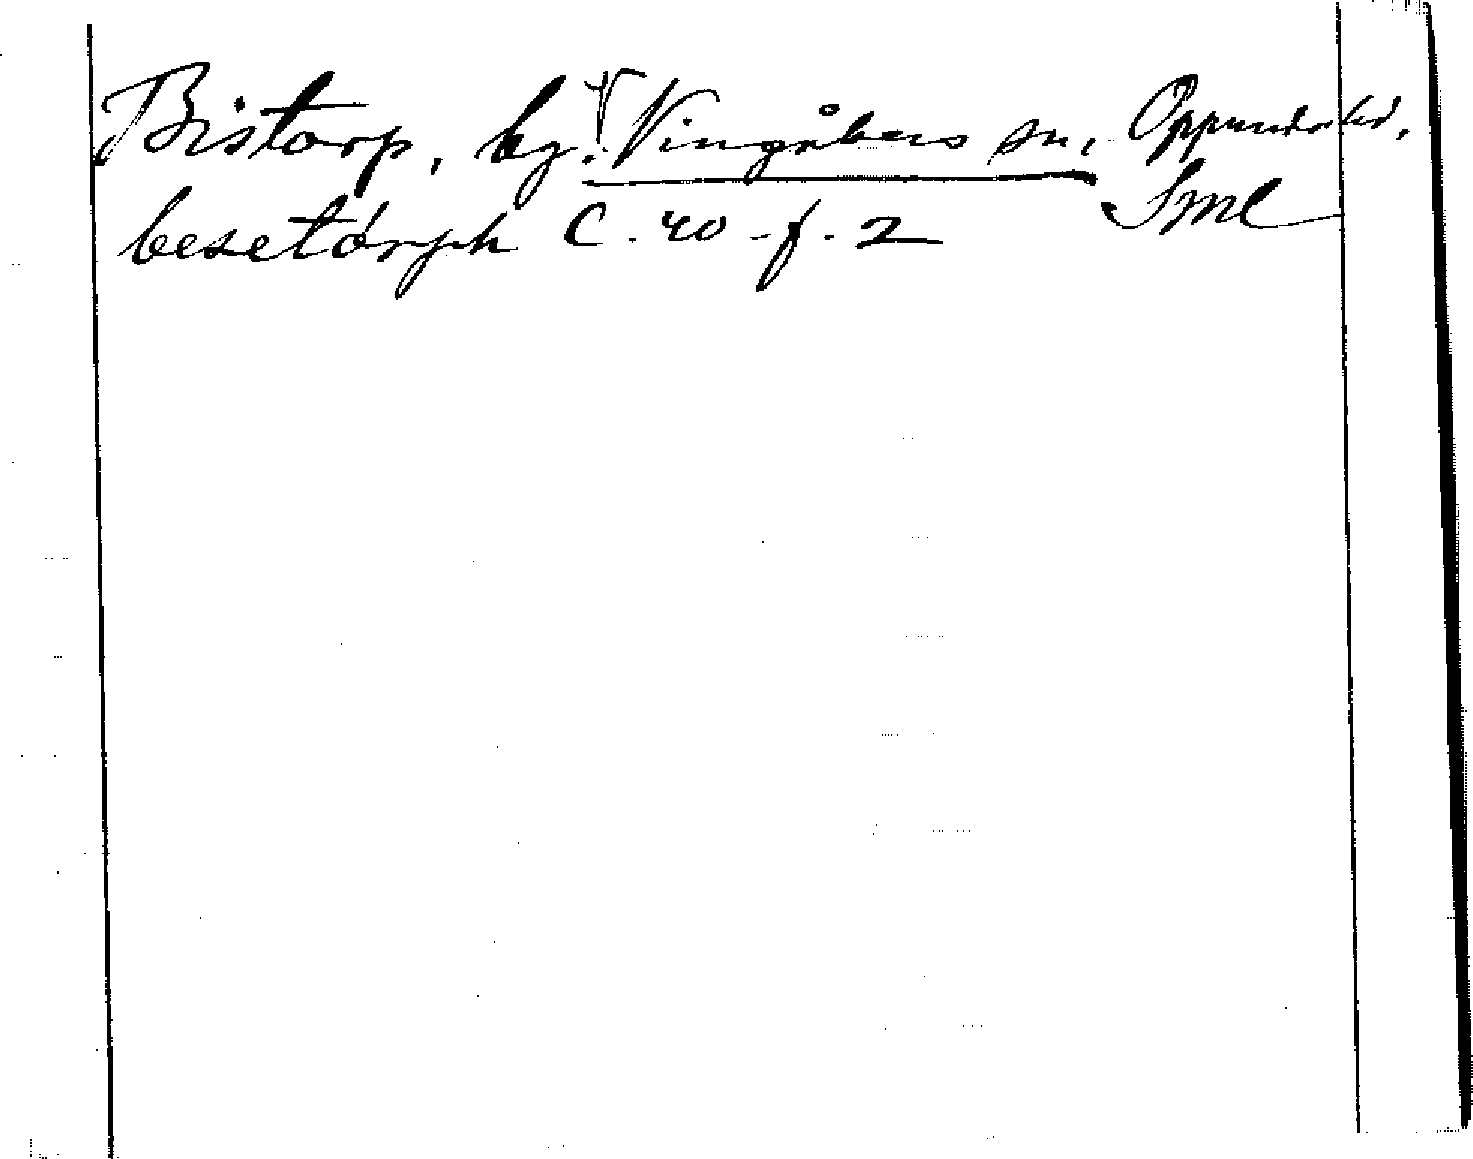 Bistorp, by. V Vingåkers sn, Oppunda hd,
Sml
besetórph C. 40 - f. 2